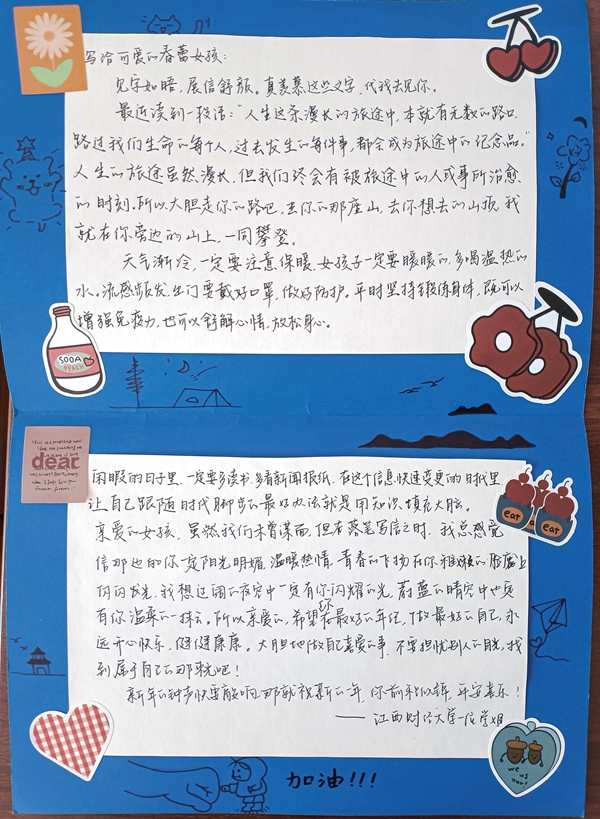 写给可爱的春蕾女孩:
见字如晤,展信舒颜。真羡慕这些文字,代我去见你。
最近读到一段话:"人生这条漫长的旅途中,本就有无数的路口
路过我们生命的每个人,过去发生的每件事,都会成为旅途中的纪念品。"
人生的旅途虽然漫长,但我们终会有被旅途中的人或事所治愈
的时刻。所以大胆走你的路吧,去你的那座山,去你想去的山顶,我
就在你旁边的山上,一同攀登。
天气渐冷,一定要注意保暖,女孩子一定要暖暖的,多喝温热的
水。流感频发,出门要戴好口罩,做好防护。平时坚持锻炼身体,既可以
增强免疫力,也可以舒解心情,放松身心。
SODA
PEACH
dear
闲暇的日子里,一定要多读书,多看新闻报纸,在这个信息快速变更的时代里
让自己跟随时代脚步的最好办法就是用知识填充大脑。
亲爱的女孩,虽然我们未曾谋面,但在落笔写信之时,我总感觉
信那边的你一定阳光明媚,温暖热情,青春的飞扬在你稚嫩的脸庞上
闪闪发光,我想辽阔的夜空中一定有你闪耀的光,蔚蓝的晴空中也定
有你温柔的一抹云。所以亲爱的,希望你在最好的年纪,做最好的自己,永
远开心快乐,健健康康。大胆地做自己喜爱的事,不要担忧别人的目光,找
到属于自己的那束光吧!
新年的钟声快要敲响,那就祝新的一年,你前程似锦,平安喜乐!
——江西财经大学一位学姐
eat
eat
we
us
our!
加油!!!